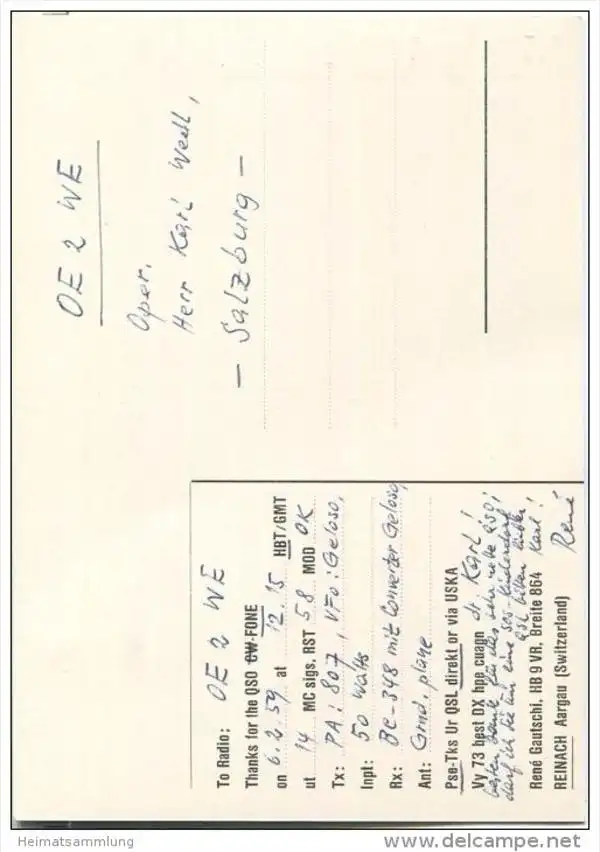 OE 2 WE
Oper.
Herr Karl Weßl,
- Salzburg -
To Radio: OE 2 WE
Thanks for the QSO CW-FONE
on 6.2.59 at 12.15 HBT/GMT
ut 14 MC sigs. RST 58 MOD OK
Tx: PA: 807, VFO: Geloso,
Inpt: 50 Watts
Rx: BC-348 mit Converter Geloso,
Ant: Grnd. plane
Pse-Tks Ur QSL direkt or via USKA
Vy 73 best DX hpe cuagn dr Karl!
besten Dank für das sehr nette QSO!
darf ich Sie um eine SOS-Kinderdorf
QSL bitten lieber Karl!
René Gautschi, HB 9 VR, Breite 864
REINACH Aargau (Switzerland) René
Heimatsammlung
www.delcampe.net